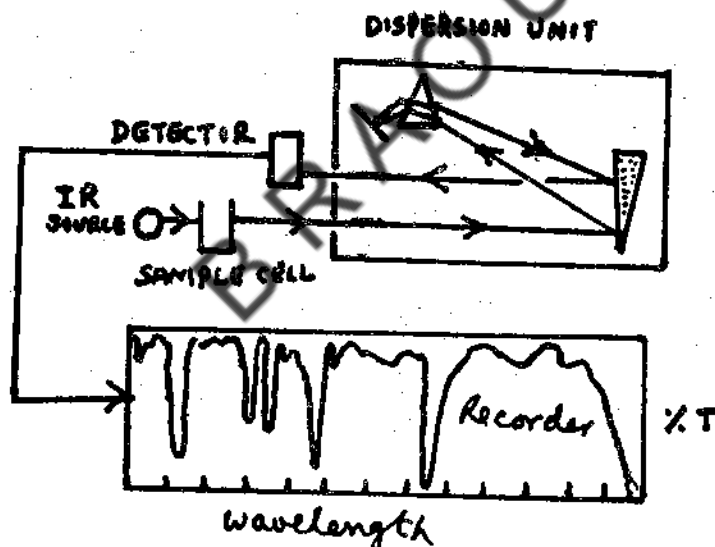 DISPERSION UNIT
DETECTOR
IR
SOURCE
SAMPLE CELL
BRAOU
Recorder
% T
wavelength